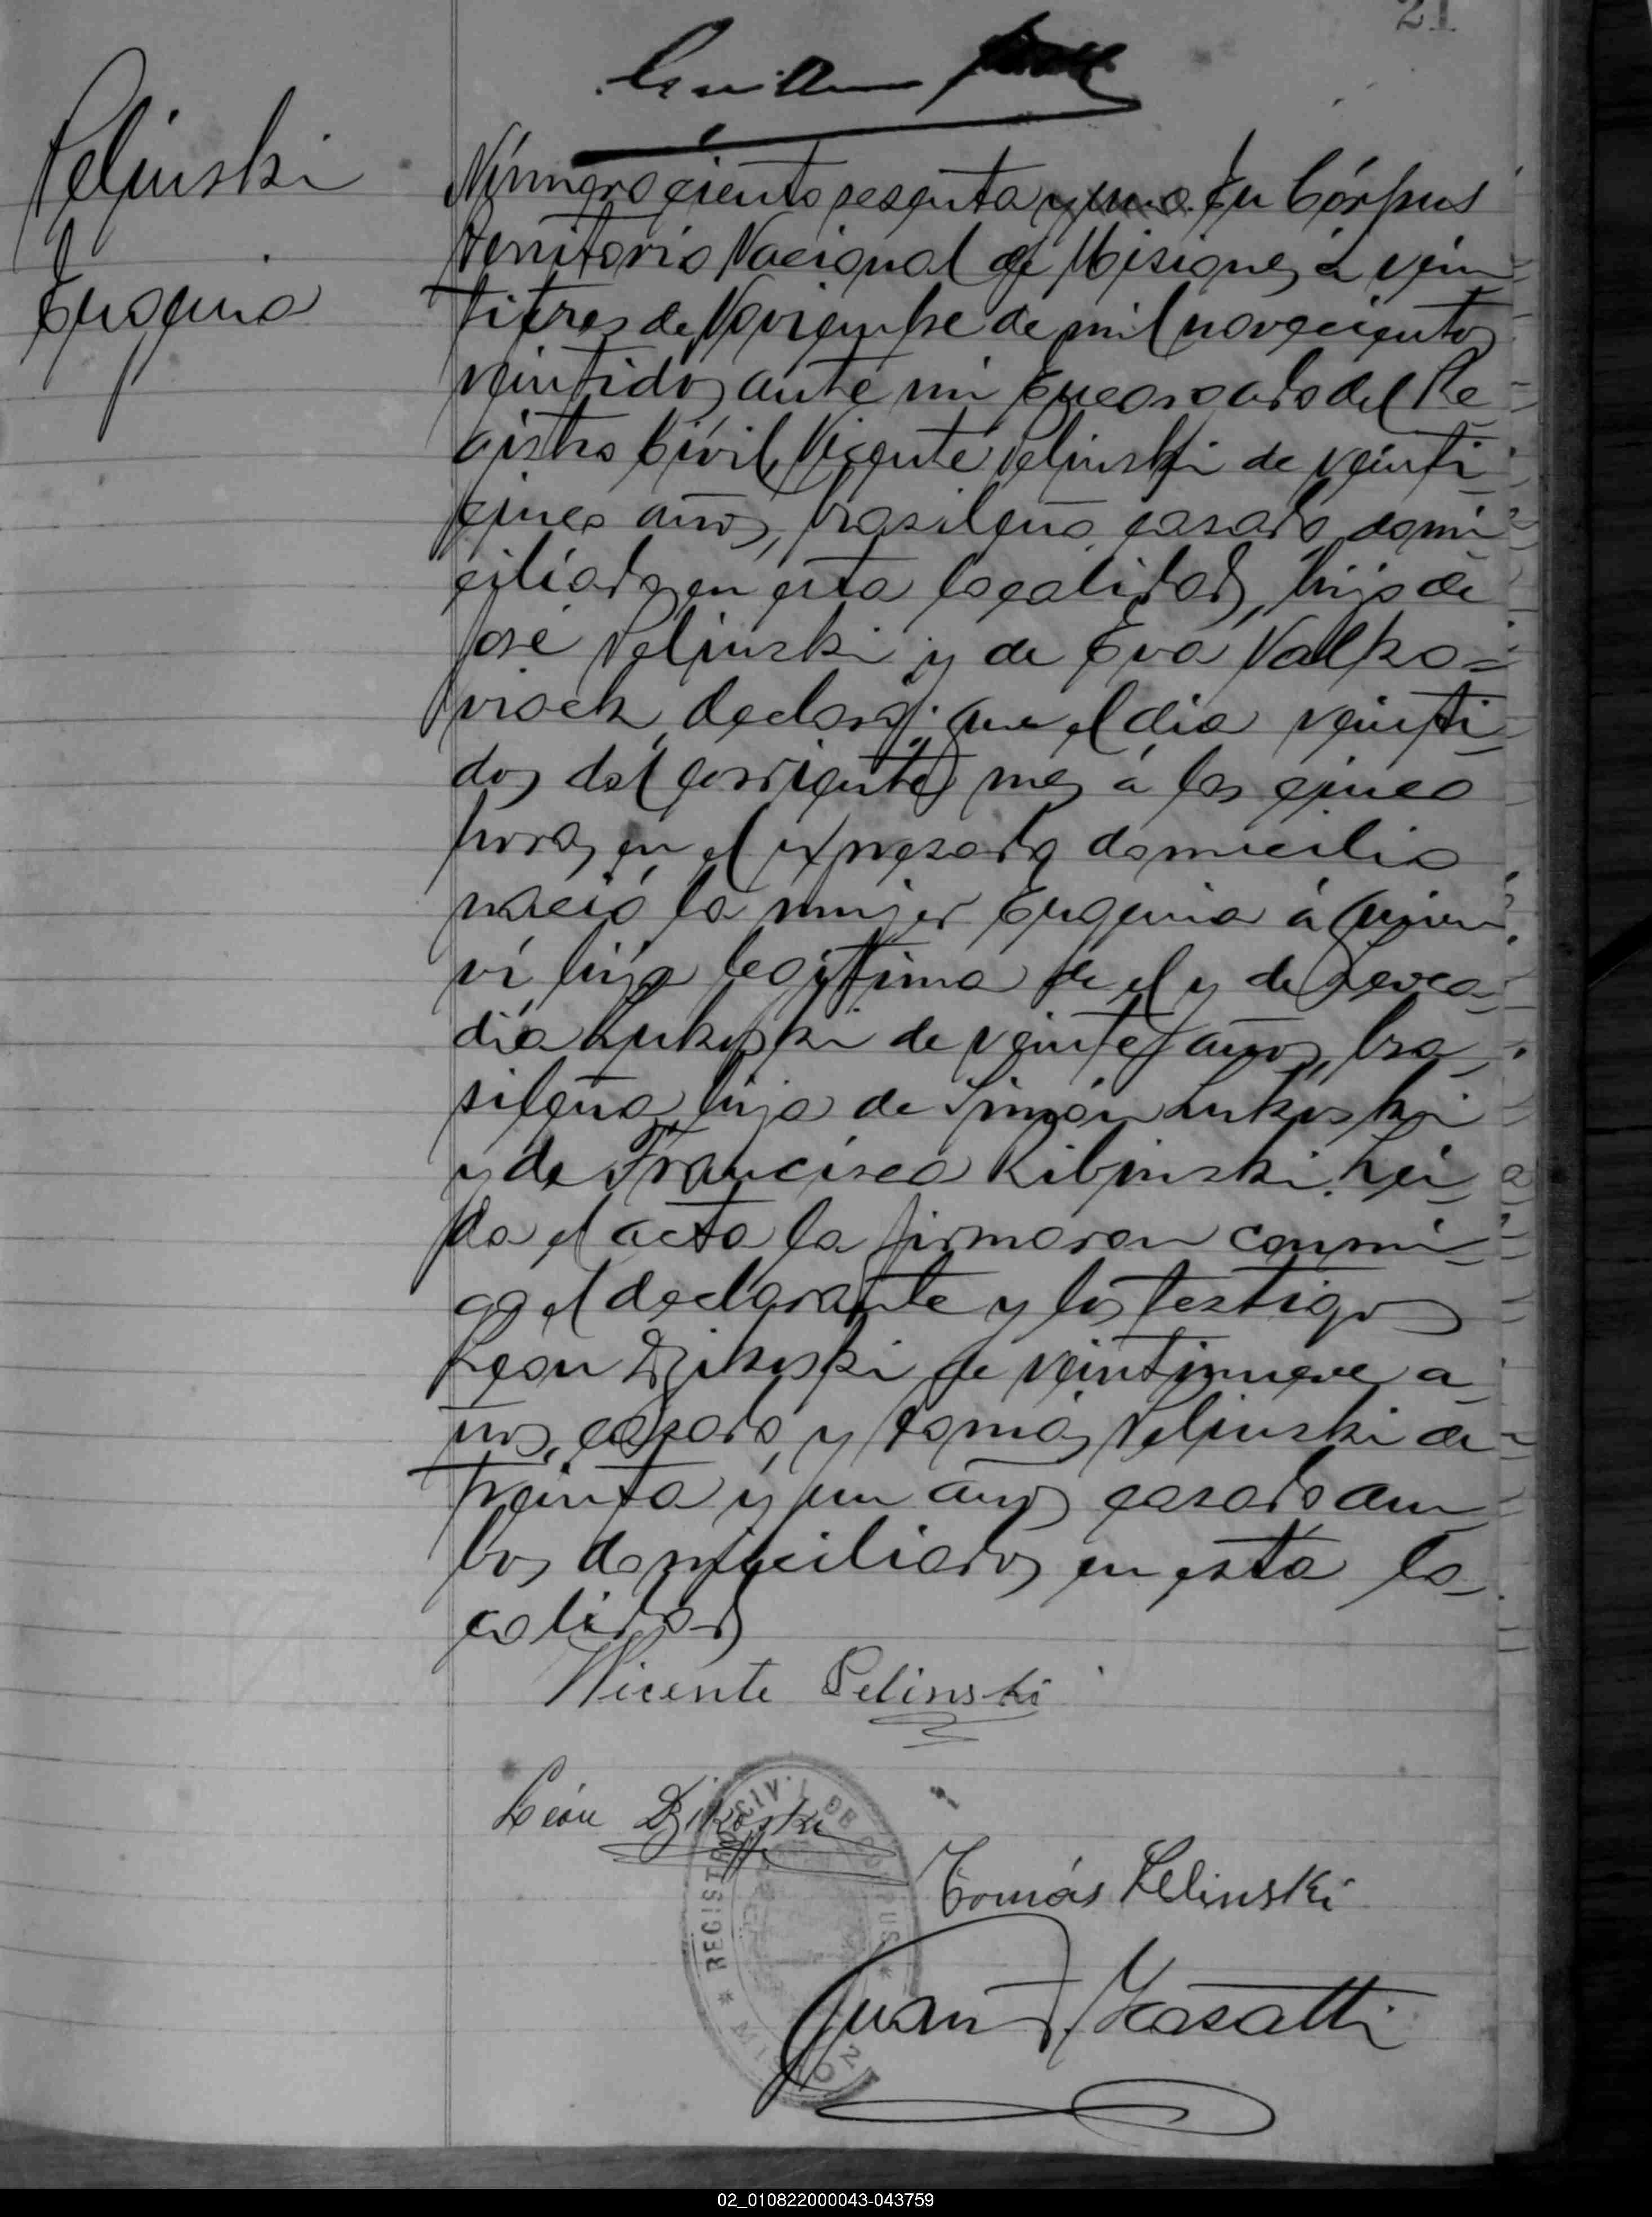 21
Guillermo
Pelinski
Eugenia
Número ciento sesenta y uno. En Córpus
Territorio Nacional de Misiones, á vein
titres de Noviembre de mil novecientos
veintidos, ante mi Encargado del Re
gistro Civil, Vicente Pelinski de veinti
cinco años, brasileño, casado, domi
ciliado en esta localidad, hijo de
José Pelinski y de Eva Valko=
viack, declaró: que el dia veinti
dos del corriente mes á las cinco
horas, en el expresado domicilio
nació la mujer Eugenia á quien
ví hija legítima de el y de Leoca=
dia Lukoski de veinte años, bra
sileña, hija de Simón Lukoski
y de Francisca Ribinski. Leí
da el acta la firmaron conmi
go el declarante y los testigos
León Dzikoski de veintinueve a
ños, casado, y Tomás Pelinski de
treinta y un años casado am
bos domiciliados en esta lo
calidad
Vicente Pelinski
León Dzikoski
Tomás Pelinski
REGISTRO CIVIL DE CORPUS * MISIONES *
Juan Masatti
02_010822000043-043759